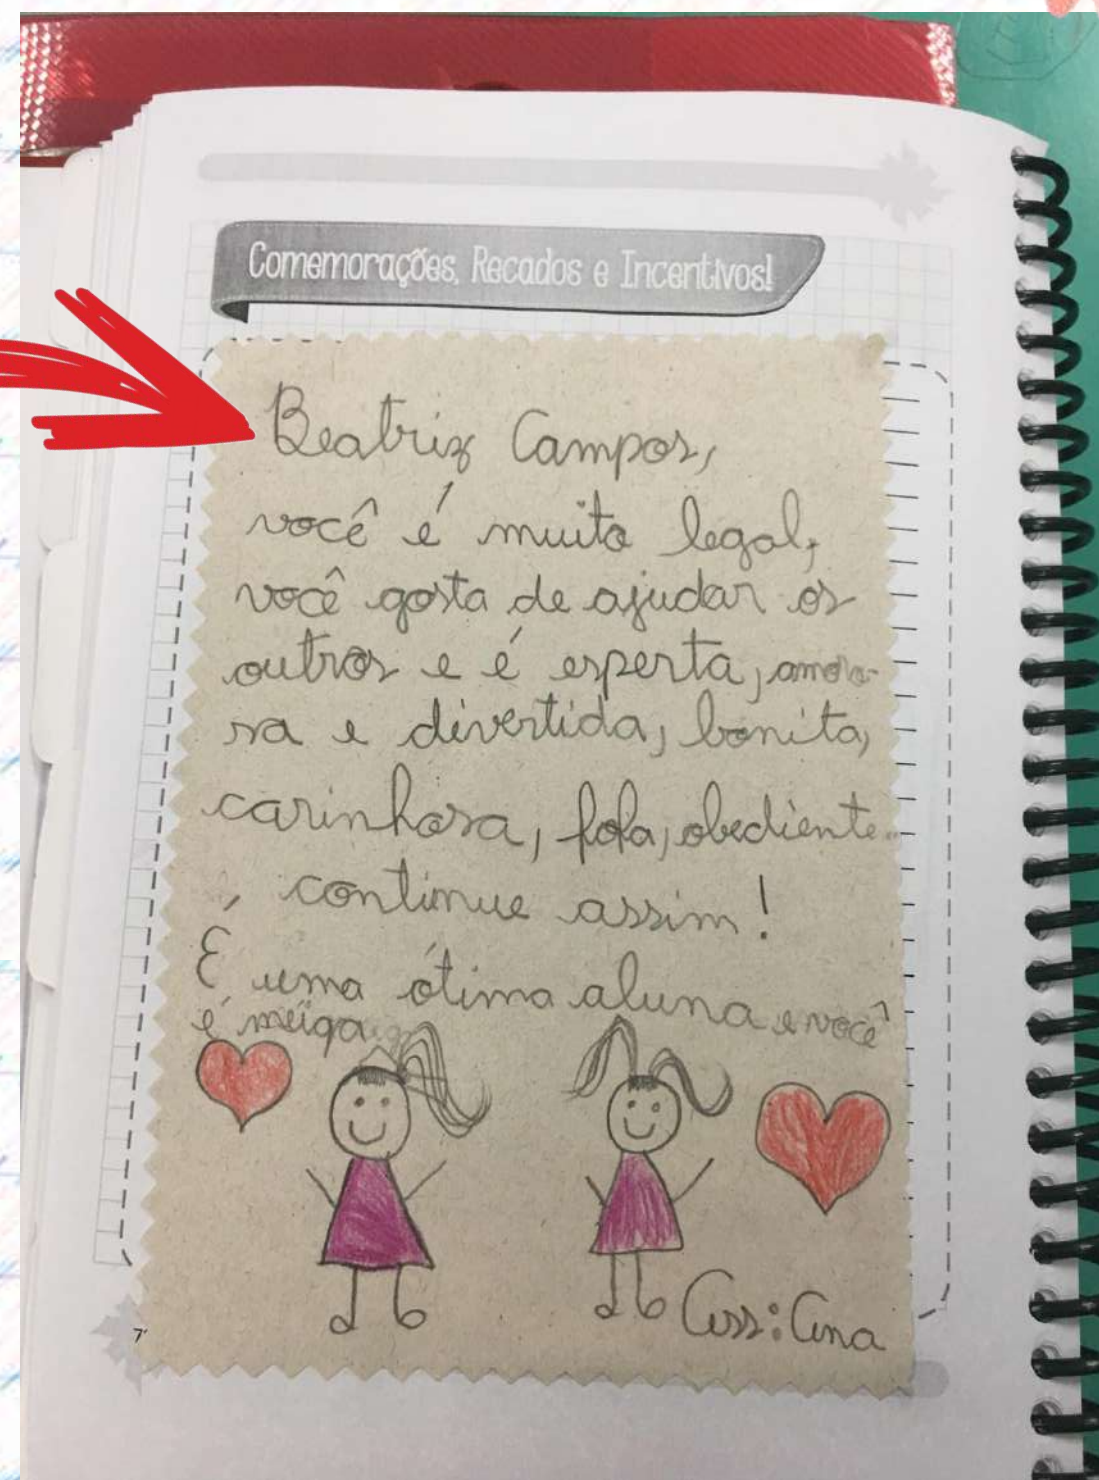 Comemorações, Recados e Incentivos!
Beatriz Campos,
você é muito legal,
você gosta de ajudar os
outros e é esperta, amoro-
sa e divertida, bonita,
carinhosa, fofa, obediente...
, continue assim!
É uma ótima aluna e você
é meiga
Ass: Ana
7